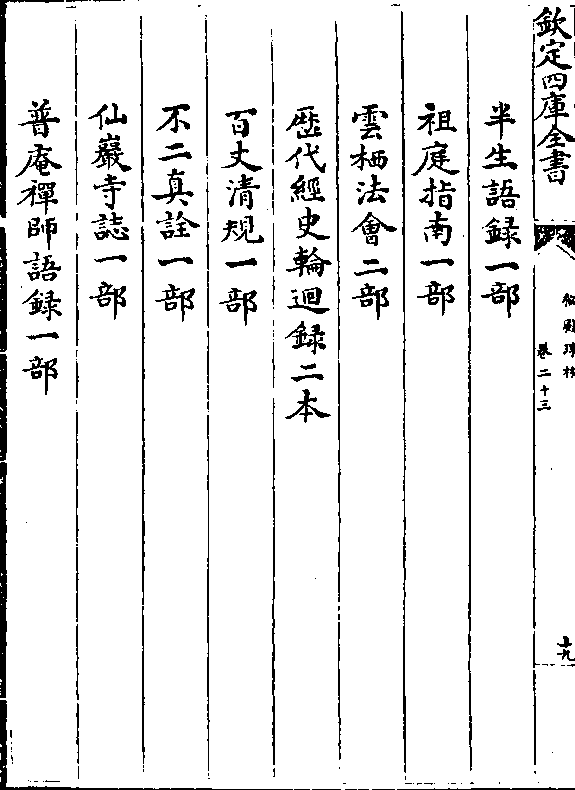 欽定四庫全書
卷二十三
十九
半生語録一部
祖庭指南一部
雲栖法㑹二部
歴代經史輪迴録二本
百丈清規一部
不二真詮一部
仙巖寺誌一部
普庵禪師語録一部